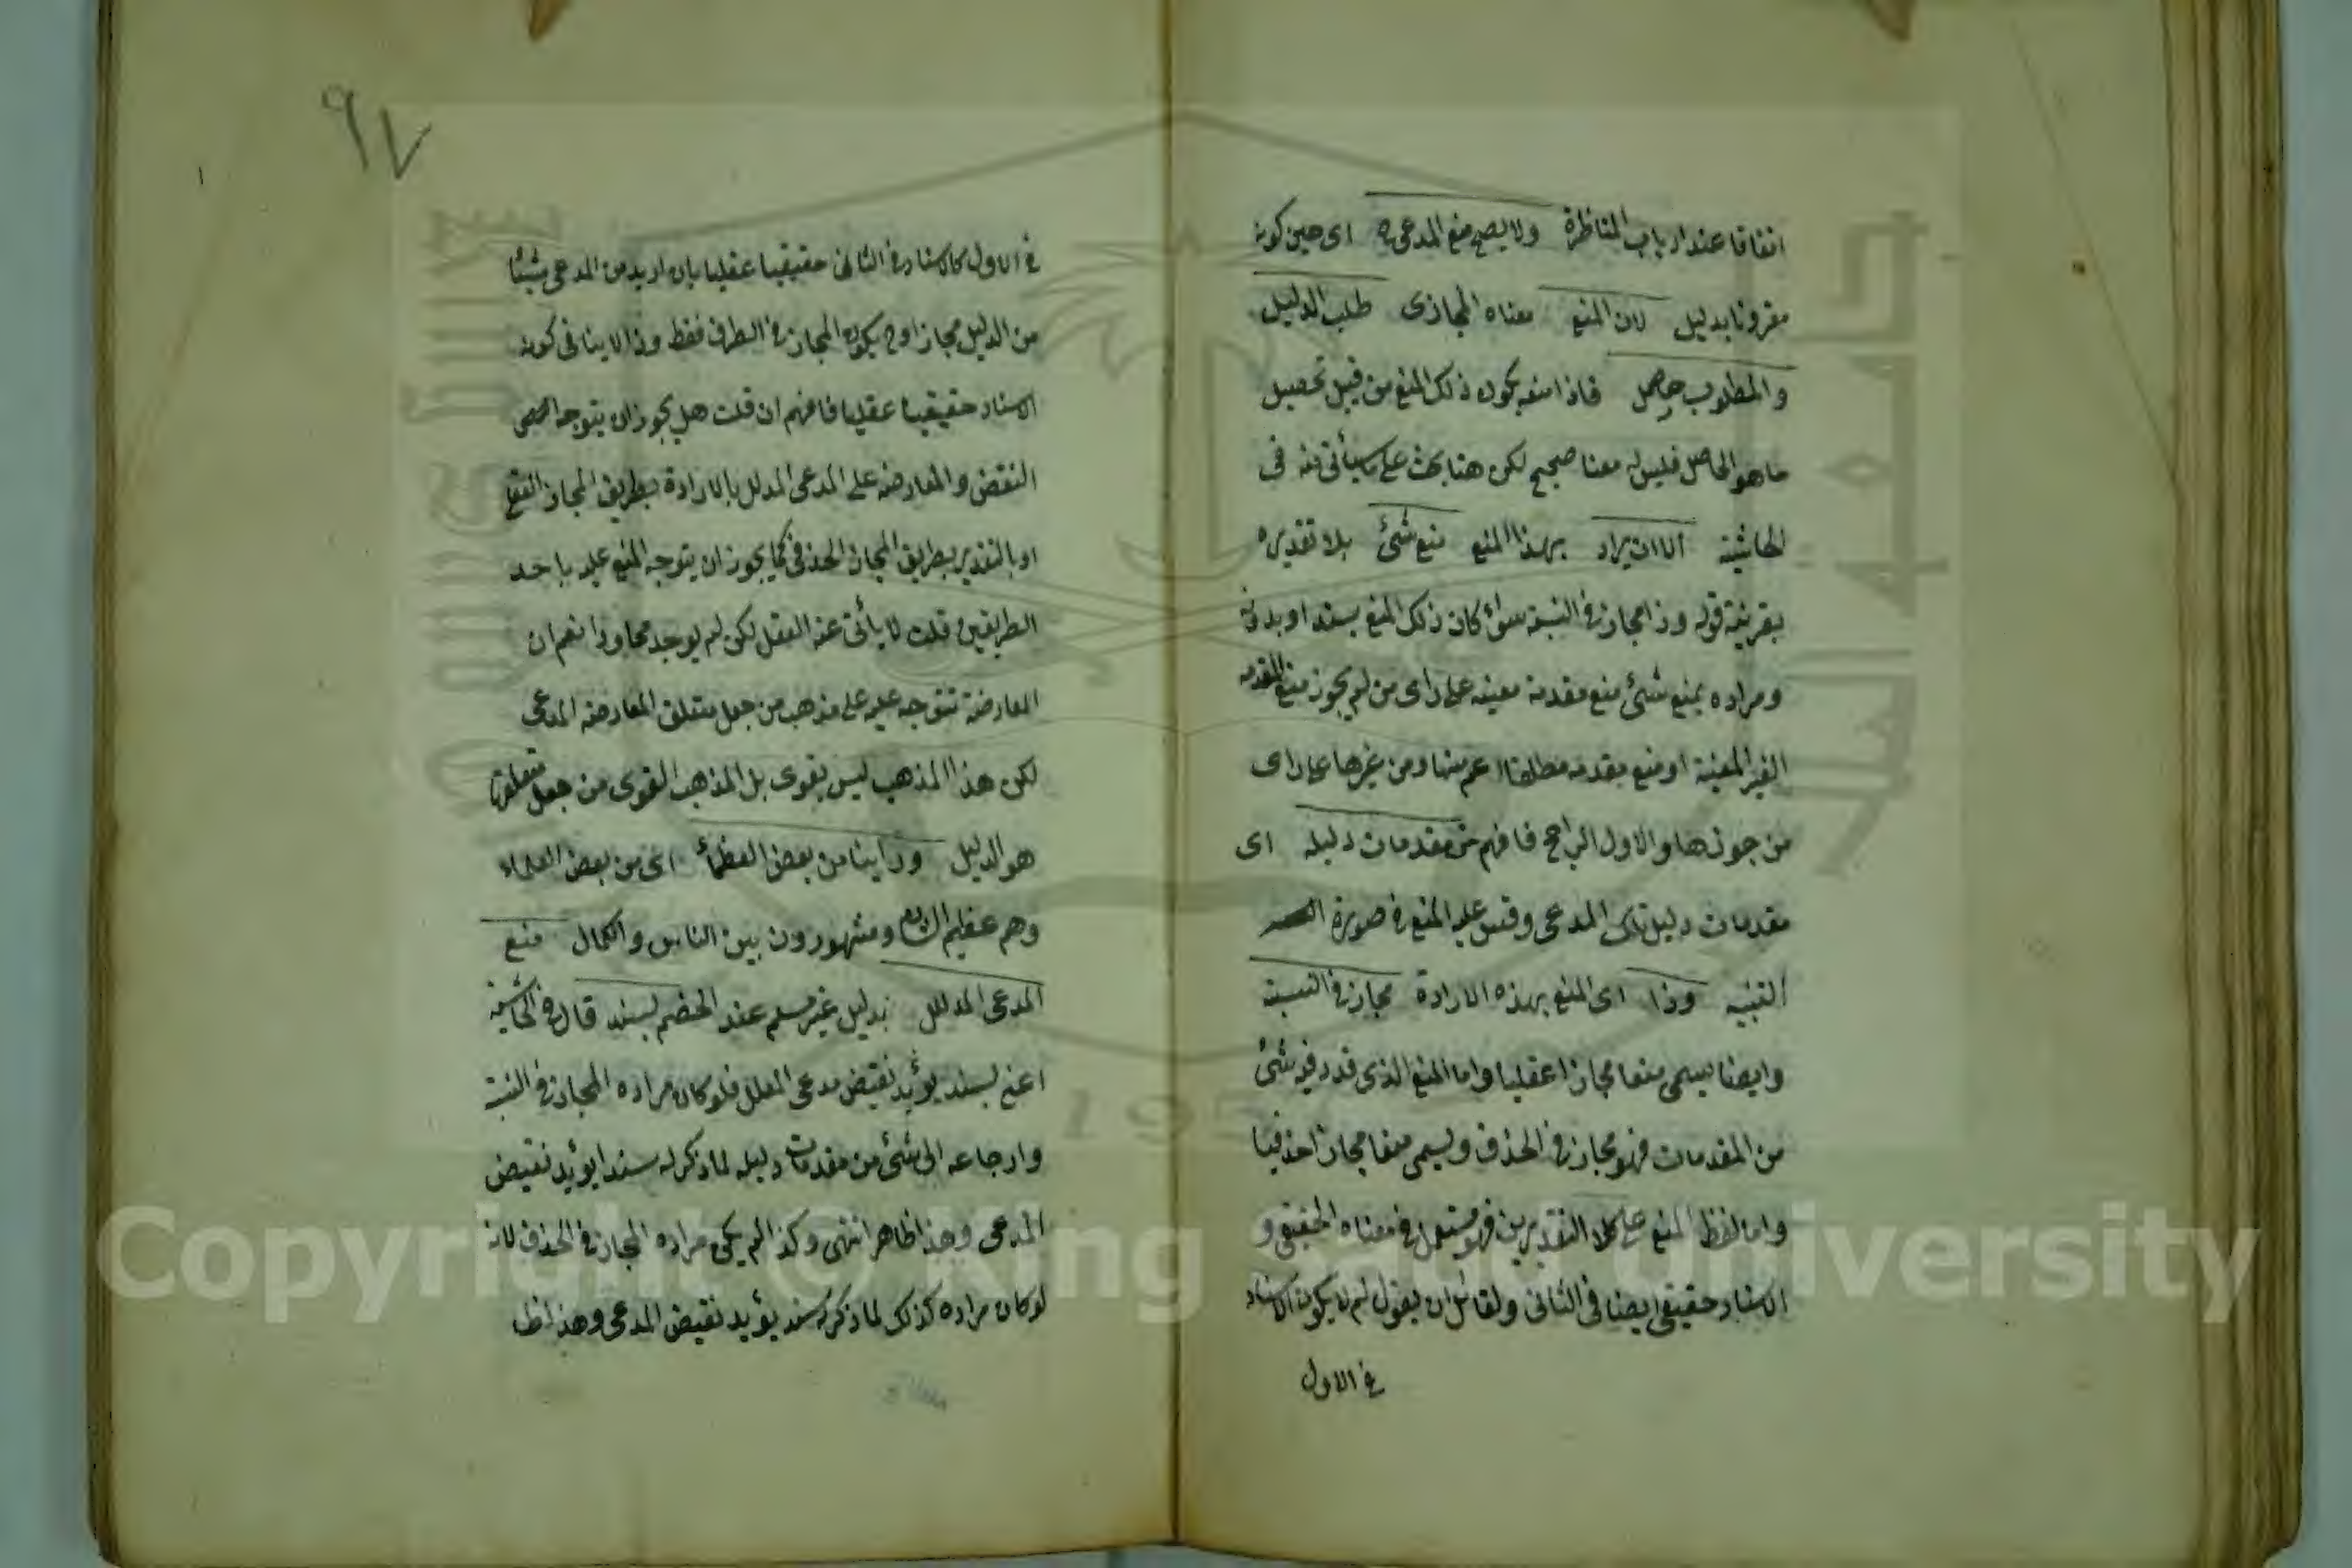 اتفاقا عند ارباب المناظرة ولا يصح منع المدعى ح اى حين كونه
مقرونا بدليل لان المنع معناه المجازى طلب الدليل
والمطلوب حاصل فاذا منع يكون ذلك المنع من قبيل تحصيل
ما هو الحاصل فليس له معنا صحيح لكن هنا بحث على ما سيأتى منه فى
الحاشية الا ان يراد بهذا المنع منع شئ بلا تقديره
بقرينة قوله وذا مجاز فى النسبة سواء كان ذلك المنع بسند او بدونه
ومراده بمنع شئ منع مقدمة معينه على راى من لم يجوز منع المقدمه
الغير المعينة او منع مقدمه مطلقا اعم منها ومن غيرها على راى
من جوزها والاول الراجح فافهم من مقدمات دليله اى
مقدمات دليل تلك المدعى وقس عليه المنع فى صورة
التنبيه وذا اى المنع بهذه الارادة مجاز فى النسبة
وايضا يسمى منعا مجازا عقليا واما المنع الذى قدر فيه شئ
من المقدمات فهو مجاز فى الحذف ويسمى منعا مجازا حذفيا
واما لفظ المنع على كلا التقديرين فهو مستعمل فى معناه الحقيقى و
الاسناد حقيقى ايضا فى الثانى ولقائل ان يقول لم لا يكون الاسناد
فى الاول
٩٧
فى الاول كالاسناد فى الثانى حقيقيا عقليا بان اريد من المدعى شيئا
من الدليل مجازا وح يكون المجاز فى الطرف فقط وذا لا ينافى كونه
الاسناد حقيقيا عقليا فافهم ان قلت هل يجوز ان يتوجه
النقض والمعارضه على المدعى المدلل بالارادة بطريق المجاز العقلى
او بالتقدير بطريق المجاز الحذفى كما يجوز ان يتوجه المنع عليه باحد
الطريقين قلت لا يأبى عنه العقل لكن لم يوجد محاورا نعم ان
المعارضة تتوجه عليه على مذهب من جعل متعلق المعارضه المدعى
لكن هذا المذهب ليس بقوى بل المذهب القوى من جعل متعلقها
هو الدليل وراينا من بعض العظماء اى من بعض العلماء
وهم عظيم الشان ومشهورون بين الناس والكمال منع
المدعى المدلل بدليل غير مسلم عند الخصم بسند قال فى الحاشية
اعنى بسند يؤيد نقيض مدعى المعلل فلو كان مراده المجاز فى النسبة
وارجاعه الى شئ من مقدمات دليله لما ذكر له سندا يؤيد نقيض
المدعى وهذا ظاهر انتهى وكذا لم يكن مراده المجاز فى الحذف لانه
لو كان مراده كذلك لما ذكر سند يؤيد نقيض المدعى وهذا ظا
Copyright © King Saud University
195